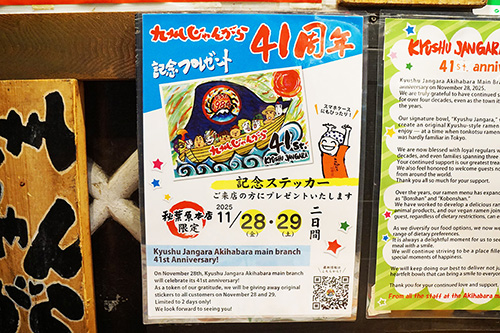 九州じゃんがら 41周年
記念プレゼント
スマホケースにもぴったり!
九州じゃんがら 41st.
KYUSHU JANGARA
記念ステッカー
ご来店の方にプレゼントいたします
秋葉原本店
限定
2025
11/28・29
(金) (土)
二日間
Kyushu Jangara Akihabara main branch
41st Anniversary!
On November 28th, Kyushu Jangara Akihabara main branch
will celebrate its 41st anniversary!
As a token of our gratitude, we will be giving away original
stickers to all customers on November 28 and 29.
Limited to 2 days only!
We look forward to seeing you!
KYUSHU JANGARA
41st. anni
Kyushu Jangara Akihabara Main B
anniversary on November 28, 2025.
We are truly grateful to have continued s
for over four decades, even as the town
the years.
Our signature bowl, "Kyushu Jangara,"
create an original Kyushu-style ramen
enjoy — at a time when tonkotsu ramen
was hardly familiar in Tokyo.
We are now blessed with loyal regulars w
decades, and even families spanning thr
The continued support is our great treas
We also feel honored to welcome guests
from around the world.
Thank you all so much for your support.
Over the years, our ramen menu has expan
as "Bonshan" and "Kobonshan."
We have worked to develop a delicious ran
animal products, and our vegan ramen jo
guest, regardless of dietary restrictions, can e
As we diversify our food options, we now we
range of dietary preferences.
It is always a delightful moment for us to see
meal with a smile.
We will continue striving to be a place filled
special moments of happiness.
We will keep doing our best to deliver not ju
heartfelt bowls that can bring a smile to everyon
Thank you for your continued love and suppor
From all the staff at the Akihabara m